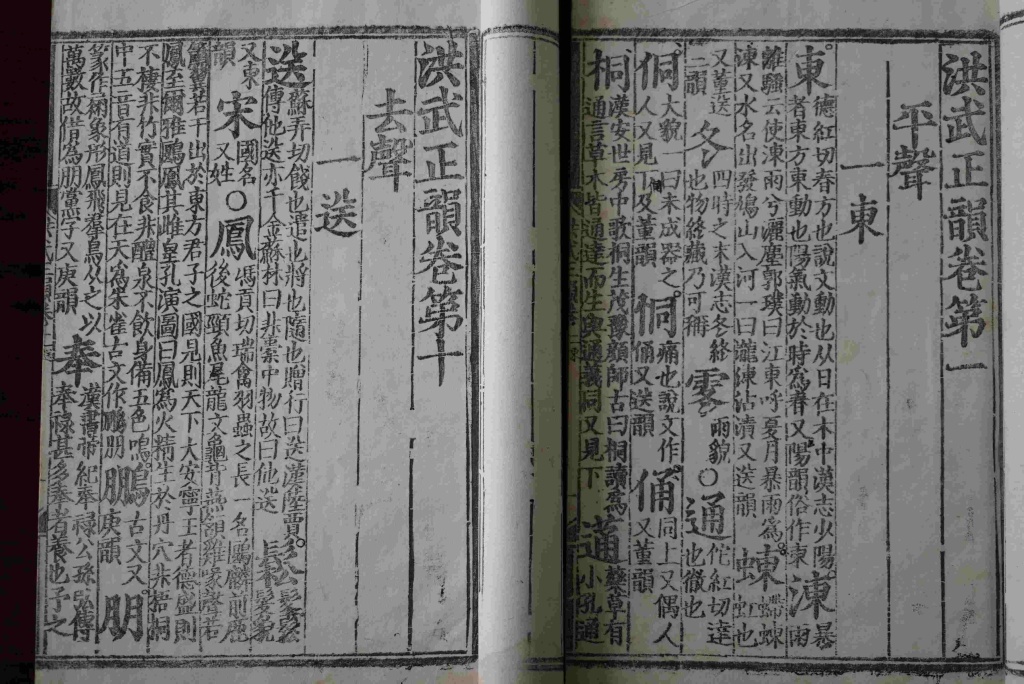 洪武正韻卷第一
平聲
一東
東德紅切春方也說文動也从日在木中漢志少陽
者東方東動也陽氣動於時為春又陽韻俗作東涷暴雨
離騷云使涷雨兮灑塵郭璞曰江東呼夏月暴雨為蝀螮蝀
涷又水名出發鳩山入河一曰瀧涷沾漬又送韻虹也
又董送二韻冬四時之末漢志冬終也物終藏乃可稱零雨貌○通佗紅切達也徹也
侗大貌一曰未成器之人又見下及董韻恫痛也說文作侗又送韻俑同上又偶人又董韻
桐漢安世房中歌桐生茂豫顏師古曰桐讀為通言草木皆通達而生與通義同又見下藥草有小孔通
洪武正韻卷第十
去聲
一送
送蘇弄切餞也遣也將也隨也贈行曰送漢陸賈
傳他送亦千金蘇林曰非橐中物故曰他送鬆髮貌
又東韻宋國名又姓○鳳馮貢切瑞禽羽蟲之長一名鶠麟前鹿
後蛇頸魚尾龍文龜背燕頷雞喙聲若
簫翼若干出於東方君子之國見則天下大安寧王者德盛則
鳳至爾雅鶠鳳其雌皇孔演圖曰鳳為火精生於丹穴非梧桐
不棲非竹實不食非醴泉不飲身備五色鳴
中五音有道則見在天為朱雀古文作鵬朋鵬古文又庚韻朋
篆作象形鳳飛羣鳥从之以
萬數故借為朋黨字又庚韻奉漢書帝紀奉祿公孫傳奉祿甚多奉者養也予之